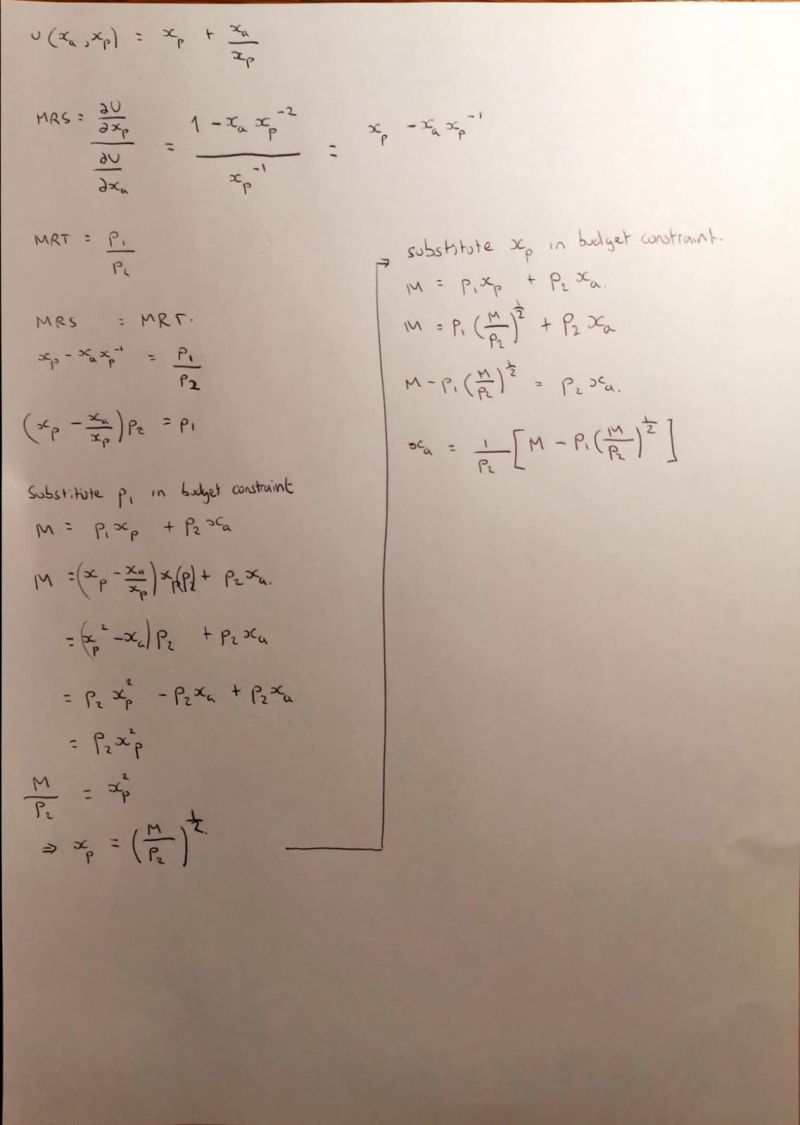 U(xₐ, xₚ) = xₚ + xₐ/xₚ
MRS = (∂U/∂xₚ)/(∂U/∂xₐ) = (1 - xₐ xₚ⁻²)/(xₚ⁻¹) = xₚ - xₐ xₚ⁻¹
MRT = P₁/P₂
MRS = MRT.
xₚ - xₐxₚ⁻¹ = P₁/P₂
(xₚ - xₐ/xₚ)P₂ = P₁
Substitute P₁ in budget constraint
M = P₁xₚ + P₂xₐ
M = (xₚ - xₐ/xₚ)xₚ(P₂) + P₂xₐ.
= (xₚ² - xₐ)P₂ + P₂xₐ
= P₂xₚ² - P₂xₐ + P₂xₐ
= P₂x²ₚ
M/P₂ = xₚ²
⇒ xₚ = (M/P₂)^½.
→ substitute xₚ in budget constraint.
M = P₁xₚ + P₂xₐ.
M = P₁(M/P₂)^½ + P₂xₐ
M - P₁(M/P₂)^½ = P₂xₐ.
xₐ = 1/P₂ [M - P₁(M/P₂)^½]